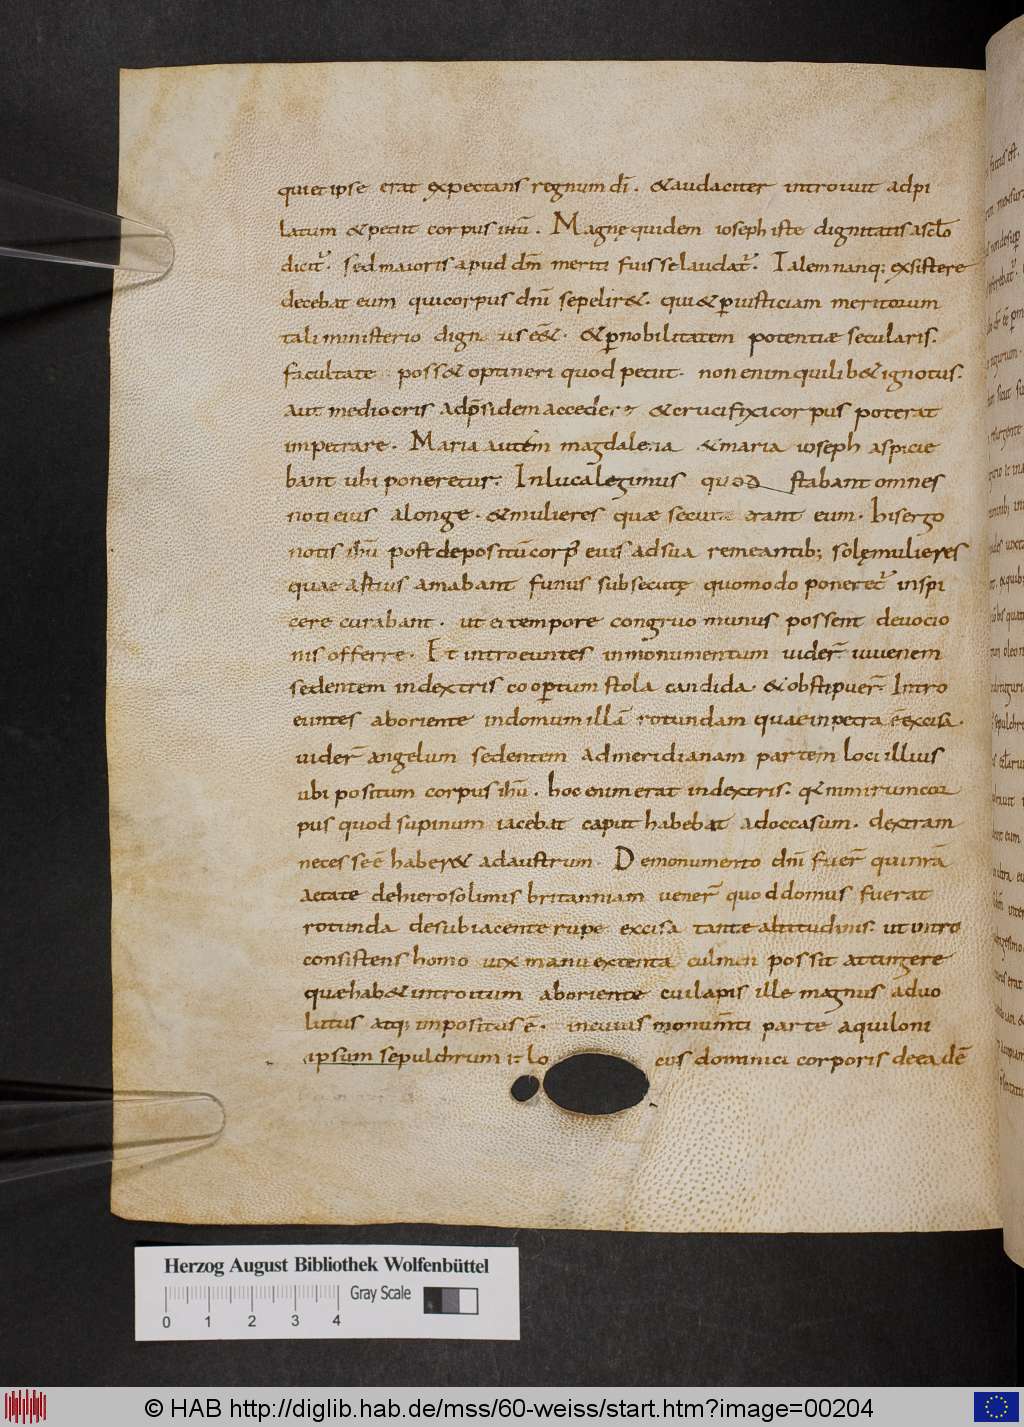 qui et ipse erat expectans regnum dī. & audaciter introiuit ad pi
latum & petiit corpus ihū. Magnę quidem ioseph iste dignitatis ad sclo
dicit̃. sed maioris apud dm̄ meriti fuisse laudat̃. Talem nanq; existere
decebat eum qui corpus dn̄i sepelir&. qui & ꝑ iusticiam meritorum
tali ministerio dignus ess&. & ꝑ nobilitatem potentiæ secularis.
facultate poss& optineri quod petiit. non enim quilib& ignotus.
aut mediocris ad p̄sidem accedere & crucifixi corpus poterat
impetrare. Maria autem magdalena & maria ioseph aspicie
bant ubi poneretur. In luca legimus quod stabant omnes
noti eius a longe. & mulieres quæ secutæ erant eum. his ergo
notis ihū post depositū corp̄ eius ad sua remeantib; solę mulieres
quae altius amabant funus subsecutę quomodo poneret̃ inspi
cere curabant. ut ei tempore congruo munus possent deuocio
nis offerre. Et introeuntes in monumentum uider̄ iuuenem
sedentem in dextris cooꝑtum stola candida & obstipuer̄. Intro
euntes ab oriente in domum illā rotundam quae in petra ē excisa.
uider̄ angelum sedentem ad meridianam partem loci illius
ubi positum corpus ihū. hoc enim erat in dextris. q̄a nimirum cor
pus quod supinum iacebat caput habebat ad occasum. dextram
necesse ē haber& ad austrum. De monumento dn̄i fuer̄ qui nr̄a
aetate de hierosolimis britanniam uener̄ quod domus fuerat
rotunda de subiacente rupe excisa tantæ altitudinis. ut intro
consistens homo uix manu extenta culmen possit attingere
quæ hab& introitum ab oriente cui lapis ille magnus aduo
lutus atq; impositus ē. in cuius monum̄ti parte aquiloni
ipsum sepulchrum i. lo cus dominici corporis de eadē
Herzog August Bibliothek Wolfenbüttel
Gray Scale
0 1 2 3 4
© HAB http://diglib.hab.de/mss/60-weiss/start.htm?image=00204